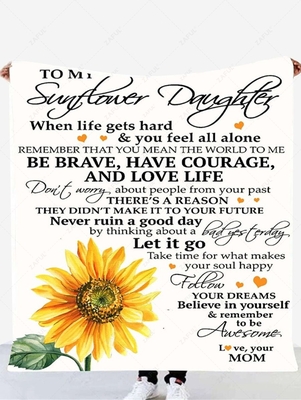 TO MY
Sunflower Daughter
When life gets hard
& you feel all alone
REMEMBER THAT YOU MEAN THE WORLD TO ME
BE BRAVE, HAVE COURAGE,
AND LOVE LIFE
Don't worry, about people from your past
THERE'S A REASON
THEY DIDN'T MAKE IT TO YOUR FUTURE
Never ruin a good day
by thinking about a bad yesterday
Let it go
Take time for what makes
your soul happy
Follow
YOUR DREAMS
Believe in yourself
& remember
to be
Awesome.
Love, your
MOM